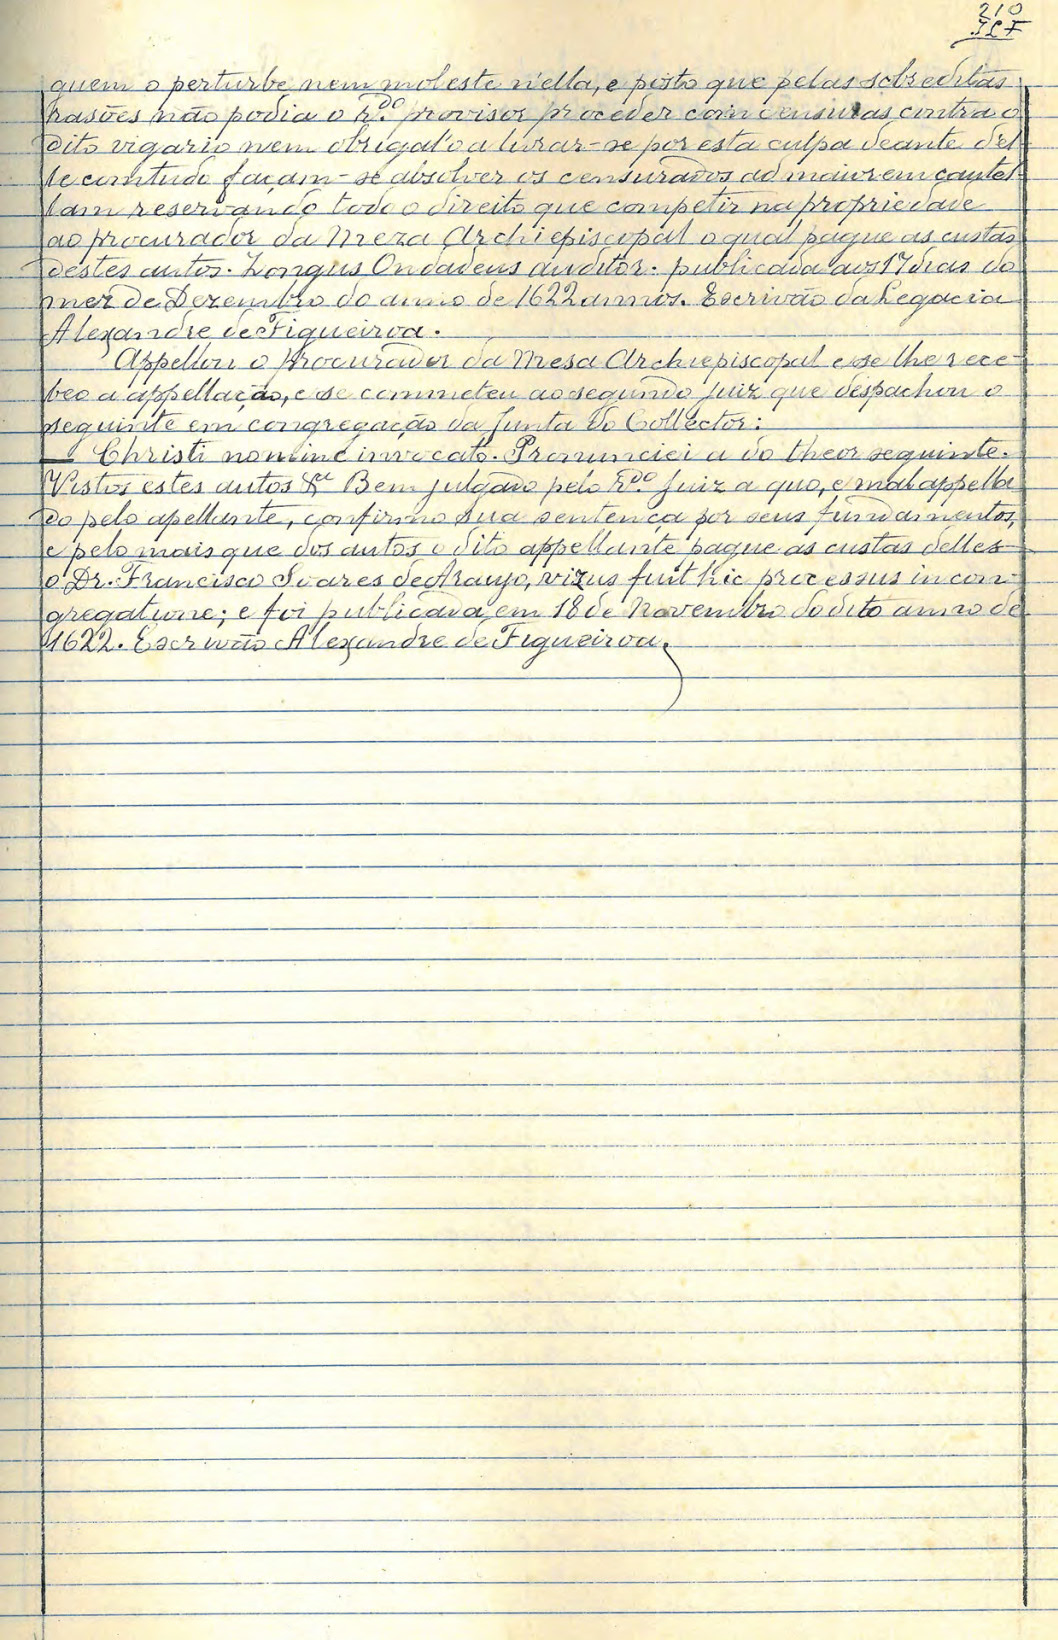 210
JCF
quem o perturbe nem moleste n'ella, e posto que pelas sobreditas
rasões não podia o R.do provisor proceder com censuras contra o
dito vigario nem obrigal'o a livrar-se por esta culpa deante del
le comtudo façam-se absolver os censurados ad maiurem cautel
lam reservando todo o direito que competir na propriedade
ao procurador da Meza Archiepiscopal o qual pague as custas
destes autos. Longus Ondadeus auditor. publicada aos 17 dias do
mez de Dezembro do anno de 1622 annos. Escrivão da Legacia
Alexandre de Figueiroa.
Appellou o procurador da Mesa Archiepiscopal e se lhe rece-
beo a appellação, e se commeteu ao segundo Juiz que despachou o
seguinte em congregação da Junta do Collector:
— Christi nomine invocato. Pronunciei a do theor seguinte.
Vistos estes autos &a Bem julgado pelo R.do Juiz a quo, e mal appella
do pelo apellante, confirmo sua sentença por seus fundamentos,
e pelo mais que dos autos o dito appellante pague as custas delles
o Dr. Francisco Soares de Araujo, vizus fuit hic processus in con-
gregatione; e foi publicada em 18 de Novembro do dito anno de
1622. Escrivão Alexandre de Figueiroa.